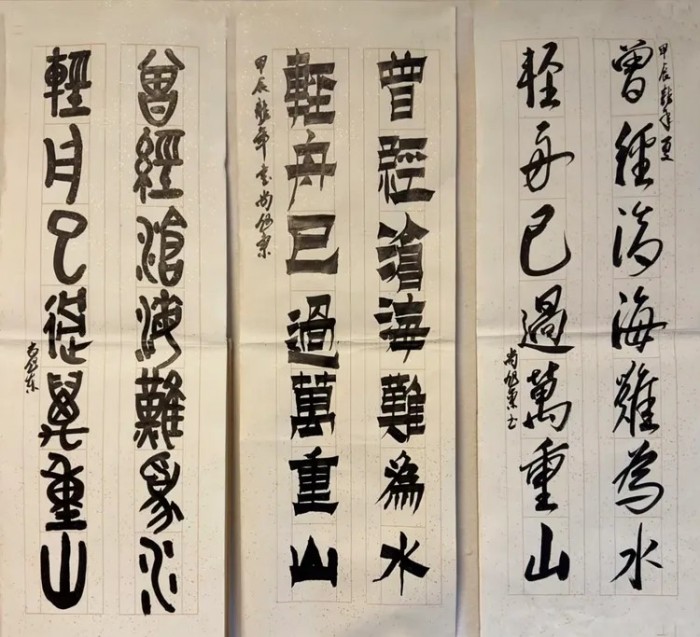 甲辰龍年夏
曾經滄海難為水
輕舟已過萬重山
曾經滄海難為水
輕舟已過萬重山
甲辰龍年書尚
曾經滄海難為水
輕舟已過萬重山